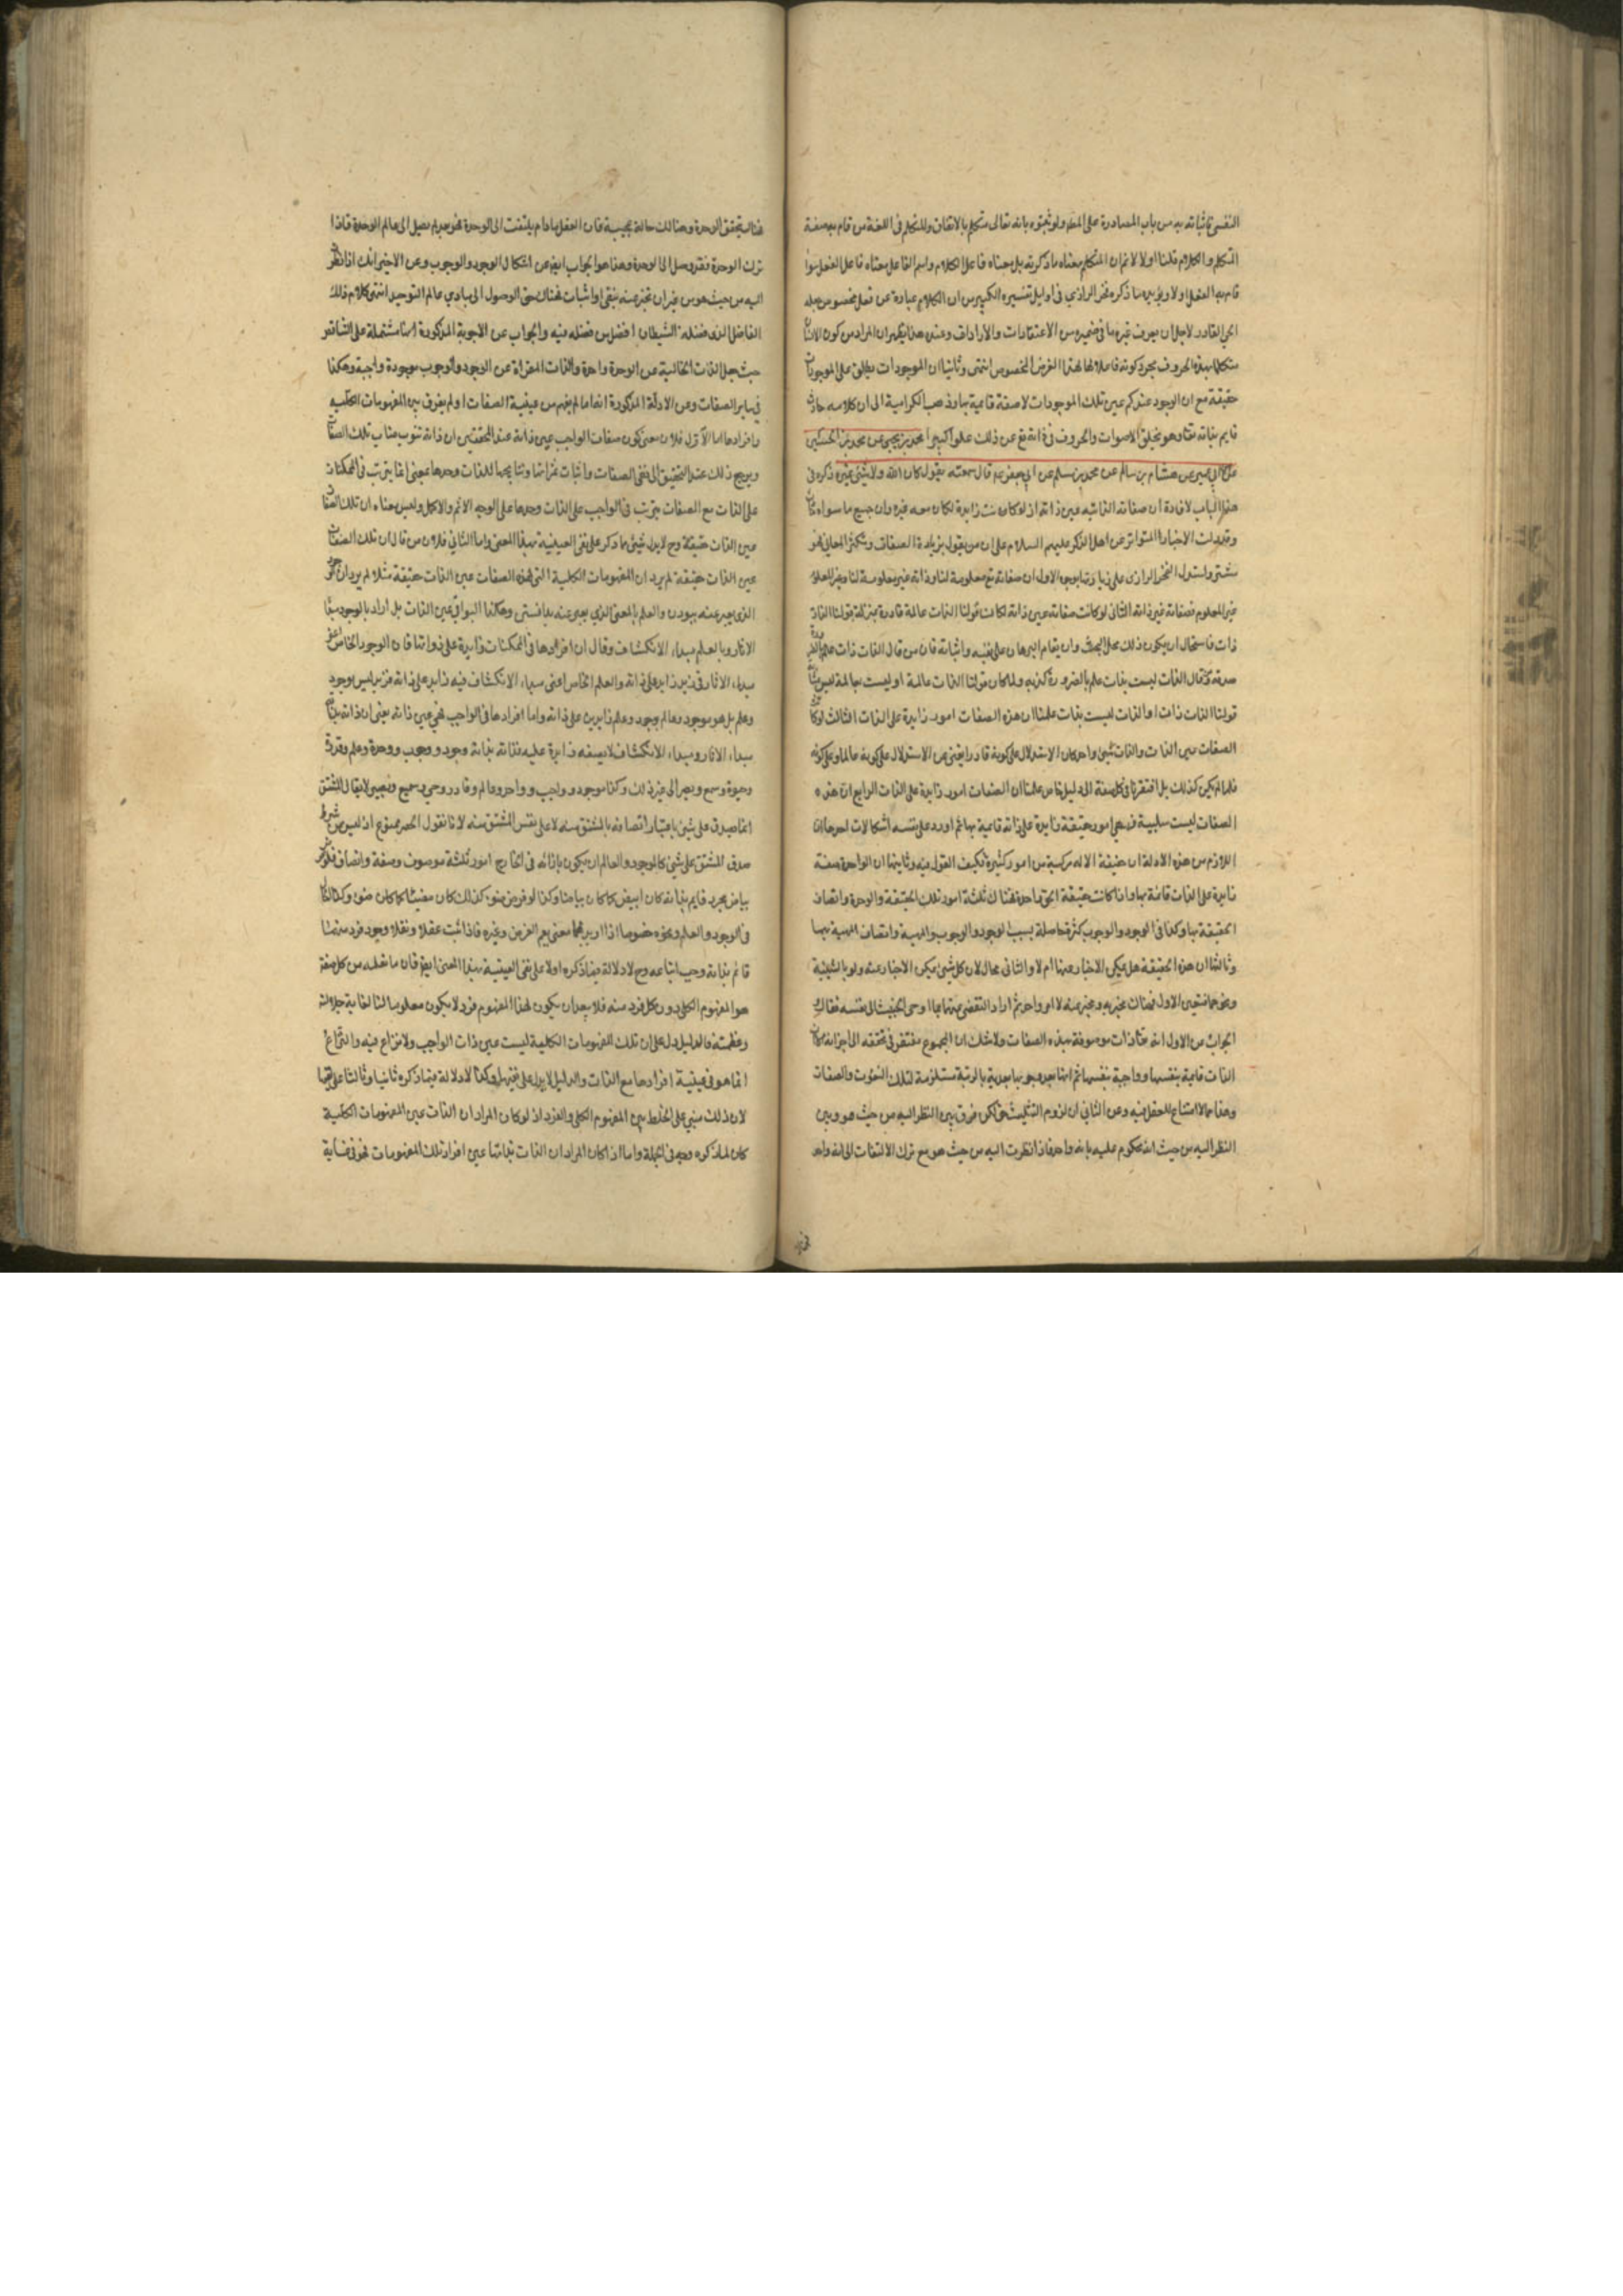 النفس فاثباته به من باب المصادرة على المط ولو ثبتوه بانه تعالى متكلم بالاتفاق والمتكلم فى اللغة من قام به صفة
التكلم والكلام قلنا اولا لانم ان المتكلم معناه ما ذكرته بل معناه فاعل الكلام واسم الفاعل معناه فاعل الفعل سواء
قام به الفعل اولا ويؤيده ما ذكره فخر الرازي فى اوايل تفسيره الكبير من ان الكلام عبارة عن فعل مخصوص يفعله
الحى القادر لاجل ان يعرف غيره ما فى ضميره من الاعتقادات والارادات وعند هذا يظهر ان المراد من كون الانسان
متكلما بهذه الحروف مجرد كونه فاعلا لها لهذا الغرض المخصوص انتهى وثانيا ان الموجودات يطلق على الموجودات
حقيقة مع ان الوجود عندكم عين تلك الموجودات لا صفة قايمة بها وذهب الكرامية الى ان كلامه حادث
قايم بذاته تعالى وهو يخلق الاصوات والحروف فى ذاته تع عن ذلك علوا كبيرا محمد بن يحيى عن محمد بن الحسين
عن ابن ابي عمير عن هشام بن سالم عن محمد بن مسلم عن ابي جعفر ع قال سمعته يقول كان الله ولا شئ غيره ذكره فى
هذا الباب لافادة ان صفاته الذاتيه عين ذاته اذ لو كانت زايدة لكان معه غيره وان جميع ما سواه
وقد دلت الاخبار المتواتر عن اهل الذكر عليهم السلام على ان من يقول بزيادة الصفات وتكثر المعانى فهو
مشتر واستدل الفخر الرازى على زيادتها بوجوه الاول ان صفاته تع معلومة لنا وذاته غير معلومة لنا وغير المعلوم
غير المعلوم فصفاته غير ذاته الثانى لو كانت صفاته عين ذاته لكانت قولنا الذات عالمة قادرة بمنزلة قولنا الذات
ذات فاستحال ان يكون ذلك محل البحث وان يقام البرهان على نفيه واثباته فان من قال الذات ذات علم بالضرورة
صدقه ومن قال الذات ليست بذات علم بالضرورة كذبه ولما كان قولنا الذات عالمة او ليست بعالمة ليس بمثابة
قولنا الذات ذات او الذات ليست بذات علمنا ان هذه الصفات امور زايدة على الذات الثالث لو كانت
الصفات عين الذات والذات شئ واحد كان الاستدلال على كونه قادرا يغنى عن الاستدلال على كونه عالما وعلى كونه
فلما لم يكن كذلك بل افتقرنا فى كل صفة الى دليل خاص علمنا ان الصفات امور زايدة على الذات الرابع ان هذه
الصفات ليست سلبية فهى امور حقيقة زايدة على ذاته قايمة بها ثم اورد على نفسه اشكالات احدها ان
اللازم من هذه الادلة ان حقيقة الاله مركبة من امور كثيرة فكيف القول فيه وثانيها ان الواحدة صفة
زايدة على الذات قائمة بها واذا كانت حقيقة الحق واحدة فهناك ثلثة امور تلك الحقيقة والوحدة واتصاف
الحقيقة بها وكذا فى الوجود والوجوب كثرة حاصلة بسبب الوجود والوجوب والمهية واتصاف المهية بهما
وثالثها ان هذه الحقيقة هل يمكن الاخبار عنها ام لا والثانى محال لان كل شئ يمكن الاخبار عنه ولو بالشيئية
ونحوها فتعين الاول فهناك مخبر به ومخبر عنه لا امر واحد ثم اراد التفصى عنها بما اوحى الخبيث الى نفسه فقال
الجواب عن الاول انه تعالى ذات موصوفة بهذه الصفات ولا شك ان المجموع مفتقر فى تحققه الى اجزائه
الذات قايمة بنفسها وواجبة بنفسها ثم انها بعد وجوبها بعدية بالرتبة مستلزمة لتلك النعوت والصفات
وهذا مما لا امتناع للعقل فيه وعن الثانى ان لزوم التثليث حق لكن فرق بين النظر اليه من حيث هو وبين
النظر اليه من حيث انه محكوم عليه بانه واحد فاذا نظرت اليه من حيث هو مع ترك الالتفات الى انه واحد
فهناك يتحقق الوحدة وهنالك حالة عجيبة فان العقل مادام يلتفت الى الوحدة فهو بعد لم يصل الى عالم الوحدة فاذا
ترك الوحدة فقد وصل الى الوحدة وهذا هو الجواب ايضا عن اشكال الوجود والوجوب وعن الاخير انك اذا نظرت
اليه من حيث هو من غير ان تخبر عنه بنفى او اثبات فهناك حق الوصول الى مبادى عالم التوحيد انتهى كلام ذلك
الفاضل الذى فضله الشيطان افضل من فضله فيه والجواب عن الاجوبة المذكورة انها مشتملة على التناقض
حيث جعل الذات الخالية عن الوحدة واحدة والذات المعراة عن الوجود والوجوب موجودة واجبة وهكذا
فى ساير الصفات وعن الادلة المذكورة انه ما لم يفهم من عينية الصفات او لم يفرق بين المفهومات الكلية
وافرادها اما الاول فلان معنى كون صفات الواجب عين ذاته عند المحققين ان ذاته تنوب مناب تلك الصفات
ويرجع ذلك عند التحقيق الى نفى الصفات واثبات ثمراتها ونتايجها للذات وحدها بمعنى انما يترتب فى الممكنات
على الذات مع الصفات يترتب فى الواجب على الذات وحدها على الوجه الاتم والاكمل وليس معناه ان تلك الصفات
عين الذات حقيقة وح لا يدل شئ مما ذكر على نفى العينية بهذا المعنى واما الثانى فلان من قال ان تلك الصفات
عين الذات حقيقة لم يرد ان المفهومات الكلية التى لهذه الصفات عين الذات حقيقة مثلا لم يرد ان الوجود
الذى يعبر عنه ببودن والعلم بالمعنى الذي يعبر عنه بدانستن وهكذا البواقى عين الذات بل اراد بالوجود مبدا
الاثار وبالعلم مبداء الانكشاف وقال ان افرادها فى الممكنات زايدة على ذواتها فان الوجود الخاص اعنى
مبداء الاثار فى زيد زايد على ذاته والعلم الخاص اعنى مبداء الانكشاف فيه زايد على ذاته فزيد ليس بوجود
وعلم بل هو موجود وعالم بوجود وعلم زايدين على ذاته واما افرادها فى الواجب فهى عين ذاته بمعنى ان ذاته بذاته
مبداء الاثار ومبداء الانكشاف لا بصفة زايدة عليه فذاته بذاته وجود ووجوب ووحدة وعلم وقدرة
وحيوة وسمع وبصر الى غير ذلك وكذا موجود وواجب وواحد وعالم وقادر وحى وسميع وبصير لا يقال المشتق
انما يصدق على شئ باعتبار اتصافه بالمشتق منه لا على نفس المشتق منه لانا نقول الحصر ممنوع اذ ليس من شرط
صدق المشتق على شئ كالموجود والعالم ان يكون بازائه فى الخارج امور ثلثة موصوف وصفة واتصاف فلو فرض
بياض مجرد قايم بذاته كان ابيض كما كان بياضا وكذا لو فرض ضوء كذلك كان مضيئا كما كان ضوء وكذا الكلام
فى الوجود والعلم ونحوه خصوصا اذا اريد بهما معنى يعم العرض وغيره فاذا ثبت عقلا ونقلا وجود فرد منهما
قائم بذاته وجب اتباعه وح لا دلالة فيما ذكره اولا على نفى العينية بهذا المعنى ايضا فان ما نعلمه من كل صفة
هو المفهوم الكلى دون كل فرد منه فلا يبعد ان يكون لهذا المفهوم فرد لا يكون معلوما لنا لغاية جلالته
وعظمته فالدليل دل على ان تلك المفهومات الكلية ليست عين ذات الواجب ولا نزاع فيه والنزاع
انما هو فى عينية افرادها مع الذات والدليل لا يدل على نفيها وكذا لا دلالة فيما ذكره ثانيا وثالثا على نفيها
لان ذلك مبنى على الخلط بين المفهوم الكلى والفرد اذ لو كان المراد ان الذات عين المفهومات الكلية
كان لما ذكره وجه فى الجملة واما اذا كان المراد ان الذات بذاتها عين افراد تلك المفهومات فهو فى غاية